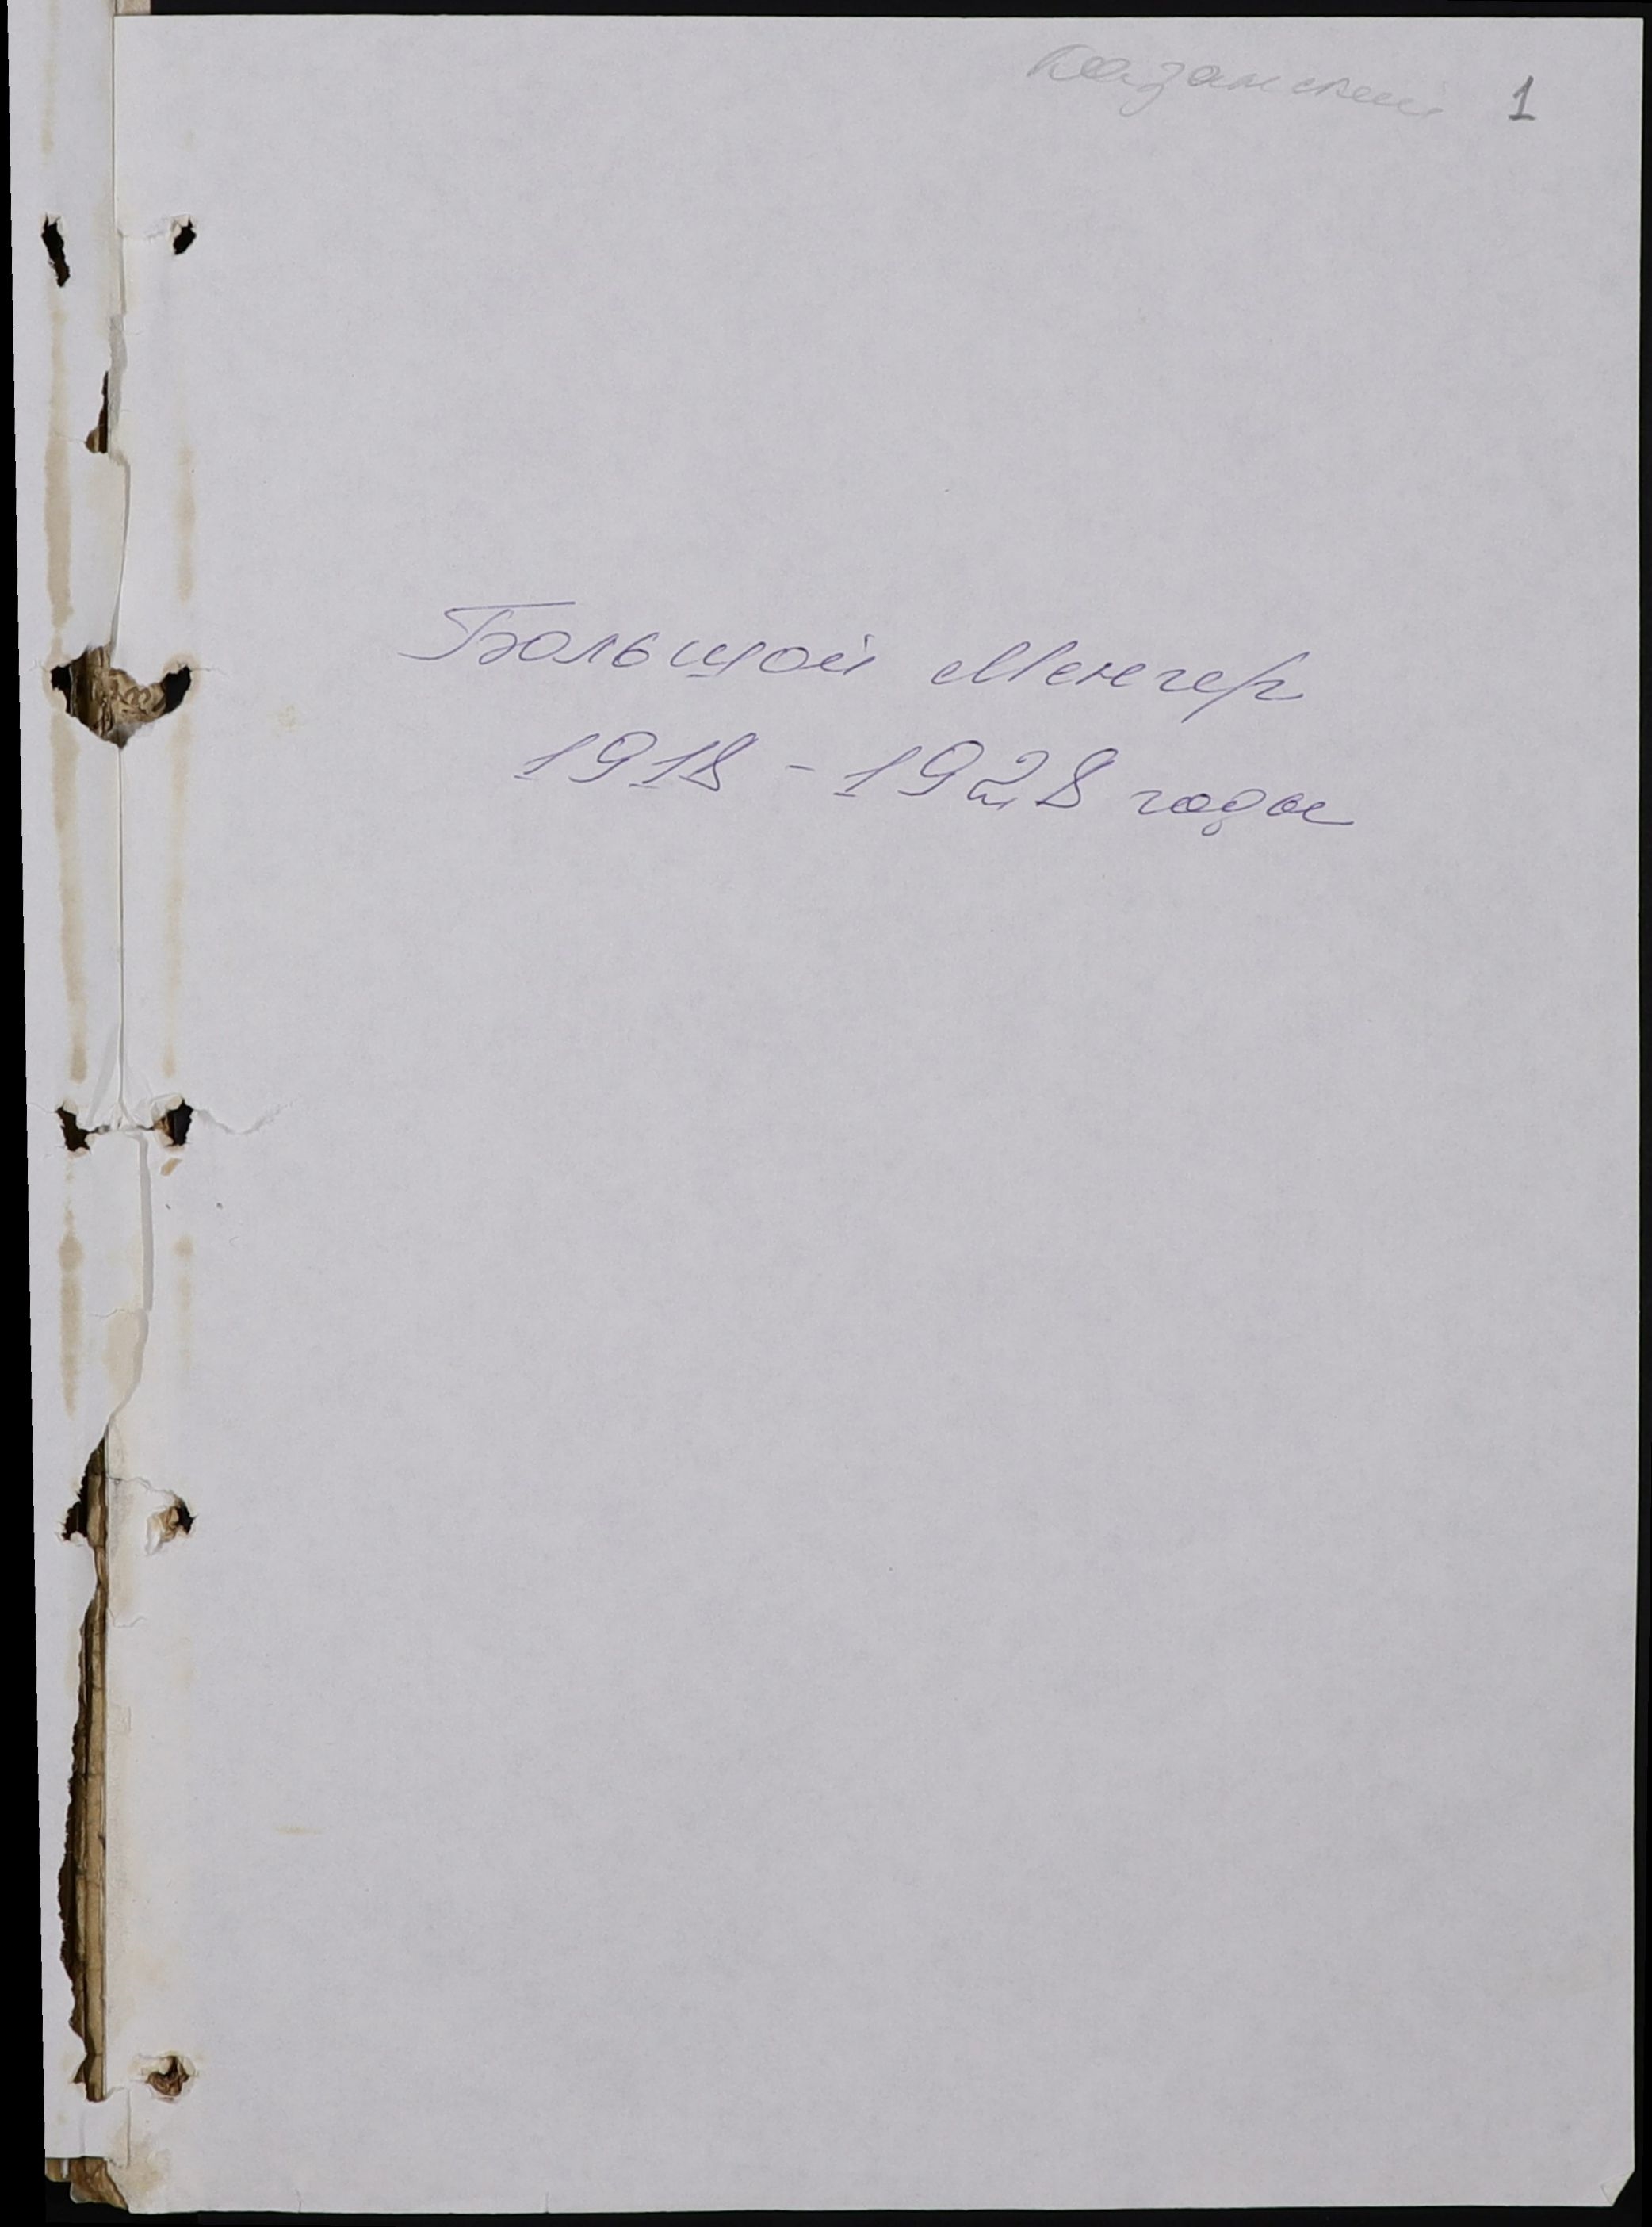 Казанский 1
Большой Менгер
1918 - 1928 годы